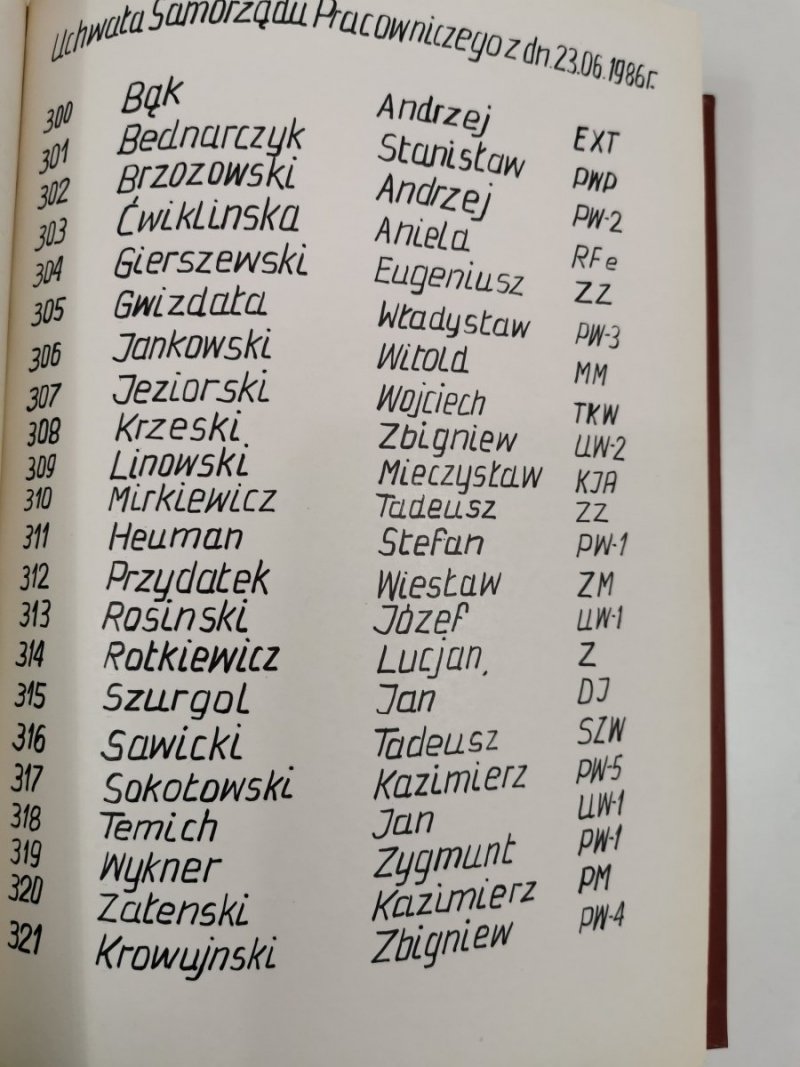 Uchwała Samorządu Pracowniczego z dn. 23.06.1986r.
300 Bąk Andrzej EXT
301 Bednarczyk Stanisław PWP
302 Brzozowski Andrzej PW-2
303 Ćwiklinska Aniela RFe
304 Gierszewski Eugeniusz ZZ
305 Gwizdała Władysław PW-3
306 Jankowski Witold MM
307 Jeziorski Wojciech TKW
308 Krzeski Zbigniew UW-2
309 Linowski Mieczysław KJA
310 Mirkiewicz Tadeusz ZZ
311 Heuman Stefan PW-1
312 Przydatek Wiesław ZM
313 Rosinski Józef UW-1
314 Rotkiewicz Lucjan Z
315 Szurgol Jan DJ
316 Sawicki Tadeusz SZW
317 Sokołowski Kazimierz PW-5
318 Temich Jan UW-1
319 Wykner Zygmunt PW-1
320 Załenski Kazimierz PM
321 Krowujnski Zbigniew PW-4